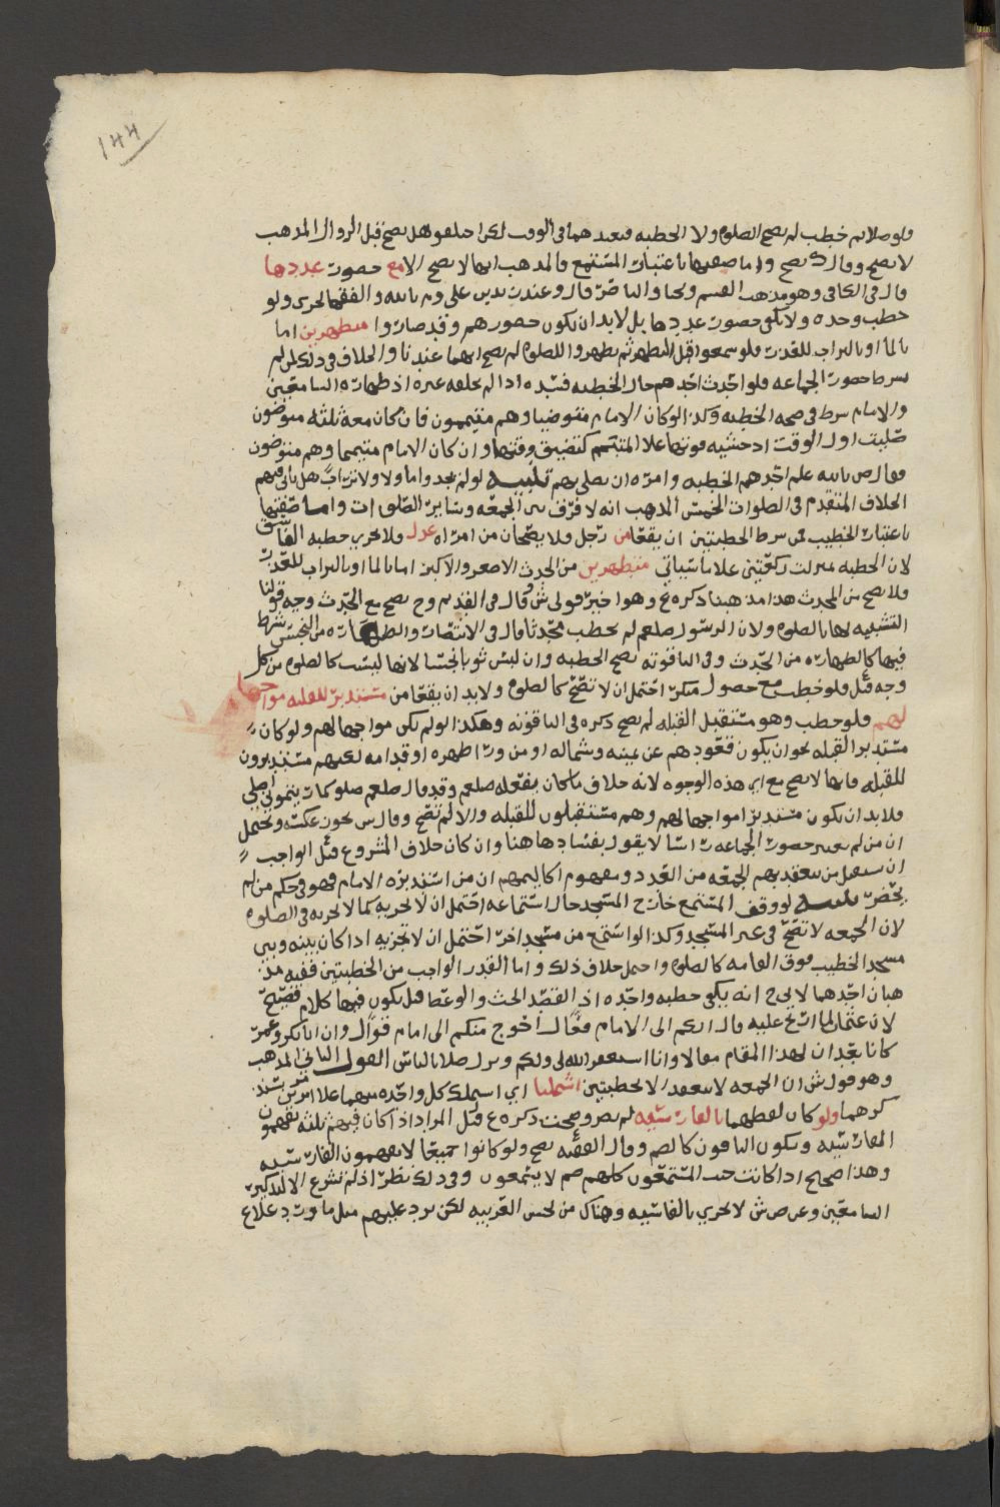 ١٤٤
فلو صلا ثم خطب لم يصح الصلوه ولا الخطبه فبعدهما في الوقت لكن اختلفو هل يصح قبل الزوال المذهب
لا يصح وقال يصح واما صفتها باعتبار المستمع فالمذهب انها لا يصح الا مع حضور عددها
قال في الكافي وهو مذهب القسم ويحيا والناصر قال وعند زيد بن علي وم بالله والفقها يجزي ولو
خطب وحده ولا يكفي حضور عددها بل لابد ان يكون حضورهم وقد صاروا متطهرين اما
بالما او بالتراب للعذر فلو سمعوا قبل التطهر ثم تطهروا للصلوه لم يصح ايهما عندنا والخلاف في ذلك لمن لم
يشرط حضور الجماعه فلو احدث احدهم حال الخطبه فسده اذا لم يخلفه غيره اذ طهارة السامعين
والامام شرط في صحه الخطبه وكذا لو كان الامام متوضيا وهم متيممون فان كان معه ثلثه متوضون
صليت اول الوقت اذ خشيه فوتها علا المتيمم كتضيق وقتها وان كان الامام متيمما وهم متوضون
فقال ص بالله علم احدهم الخطبه وامره ان يصلي بهم تنبيه لو لم يجدوا ما ولا ترابا هل ياتي فيهم
الخلاف المتقدم في الصلوات الخمس المذهب انه لا فرق بين الجمعه وساير الصلوات واما صفتها
باعتبار الخطيب فمن شرط الخطبتين ان يقعا من رجل فلا يصحان من امراه عدل فلا يجزي خطبه الفاسق
لان الخطبه بمنزلت ركعتين علا ما سياتي متطهرين من الحدث الاصغر والاكبر اما بالما او بالتراب للعذر
فلا يصح من المحدث هذا مذهبنا ذكره ع وهو اخير قولي ش وقال في القديم وح يصح مع الحدث وجه قولنا
التشبيه لها بالصلوه ولان الرسول صلعم لم يخطب محدثا قال في الانتصار والطهاره من النجس شرط
فيها كالطهاره من الحدث وفي الياقوته تصح الخطبه وان لبس ثوبا نجسا لانها ليست كالصلوه من كل
وجه قيل فلو خطب مع حصول منكر احتمل ان لا تصح كالصلوه ولا بد ان يقعا من مستدبر للقبله مواجها
لهم فلو خطب وهو مستقبل القبله لم يصح ذكره في الياقوته وهكذا لو لم يكن مواجها لهم ولو كان
مستدبر القبله نحو ان يكون قعودهم عن يمينه وشماله او من ورا ظهره او قدامه لكنهم مستدبرون
للقبله فانها لا تصح مع اي هذه الوجوه لانه خلاف ما كان يفعله صلعم وقد قال صلعم صلو كما رايتموني اصلي
فلا بد ان يكون مستدبرا مواجها لهم وهم مستقبلون للقبله والا لم تصح وقال س نحوز عكسه ويحتمل
ان من لم يعتبر حضور الجماعه راسا لا يقول بفسادها هنا وان كان خلاف المشروع قيل الواجب
ان يستقبل من تنعقد بهم الجمعه من العدد ومفهوم اكاليمهم ان من استدبره الامام فهو في حكم من لم
يحضر تنبيه لو وقف المستمع خارج المسجد حال استماعه احتمل ان لا يجزيه كما لا يجزيه في الصلوه
لان الجمعه لا تصح في غير المسجد وكذا لو استمع من مسجد اخر احتمل ان لا تجزيه اذا كان بينه وبين
مسجد الخطيب فوق القامه كالصلوه واحتمل خلاف ذلك واما القدر الواجب من الخطبتين ففيه مذ
هبان احدهما لابي ح انه يكفي خطبه واحده اذ القصد الحث والوعظ قيل يكون فيها كلام فصيح
لان عثمان لما ارتج عليه قال انكم الى الامام فعال احوج منكم الى امام قوال وان ابا بكر وعمر
كانا يعدان لهذا المقام مقالا وانا استغفر الله لي ولكم ونزل صلا بالناس القول الثاني المذهب
وهو قول ش ان الجمعه لا تنعقد الا بخطبتين اشتملتا اي اشتملت كل واحده منهما علا امرين سنذ
كرهما ولو كان لفظهما بالفارسيه لم يضر وصحت ذكره ع قيل المراد اذا كان فيهم ثلثه يفهمون
الفارسيه ويكون الباقون كالصم وقال الفقيه يصح ولو كانوا جميعا لا يفهمون الفارسيه
وهذا صحيح اذا كانت حيث المستمعون كلهم صم لا يسمعون وفي ذلك نظر اذ لم تشرع الا لتذكير
السامعين وعن ص ش لا تجزي بالفارسيه وهناك من لحسن العربيه لكن يرد عليهم مثل ما ورد علاع